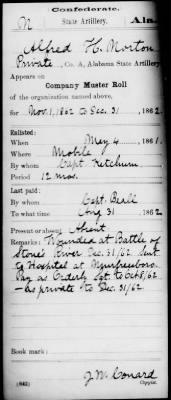 Confederate.
M State Artillery. Ala.
Alfred H. Morton
Private, Co. A, Alabama State Artillery
Appears on
Company Muster Roll
of the organization named above,
for Nov. 1, 1862 to Dec. 31, 1862.
Enlisted:
When May 4, 1861.
Where Mobile
By whom Capt Ketchum
Period 12 mos.
Last paid:
By whom Capt. Beall
To what time Aug 31, 1862.
Present or absent Absent
Remarks: Wounded at Battle of
Stones River Dec. 31/62. Sent
to Hospital at Murfreesboro.
Pay as Orderly Sgt to Oct 8/62
– as private to Dec. 31/62.
Book mark:
(642) J. M. Conard
Copyist.